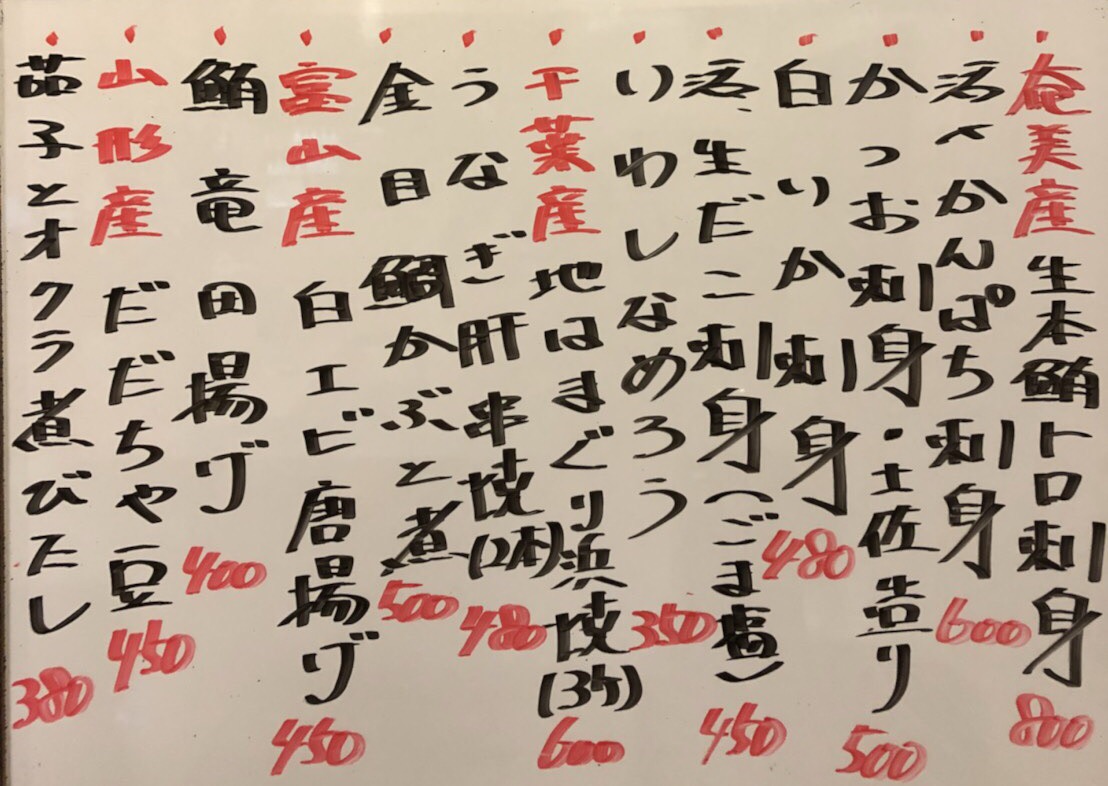 奄美産 生本鮪トロ刺身 800
活〆かんぱち刺身 600
かつお刺身・土佐造り 500
白いか刺身 480
活、生だこ刺身(ごま塩) 450
いわしなめろう 350
千葉産 地はまぐり浜焼(3ケ) 600
うなぎ肝串焼(2本) 480
金目鯛かぶと煮 500
富山産 白エビ唐揚げ 450
鮪竜田揚げ 400
山形産 だだちゃ豆 450
茄子とオクラ煮びたし 380